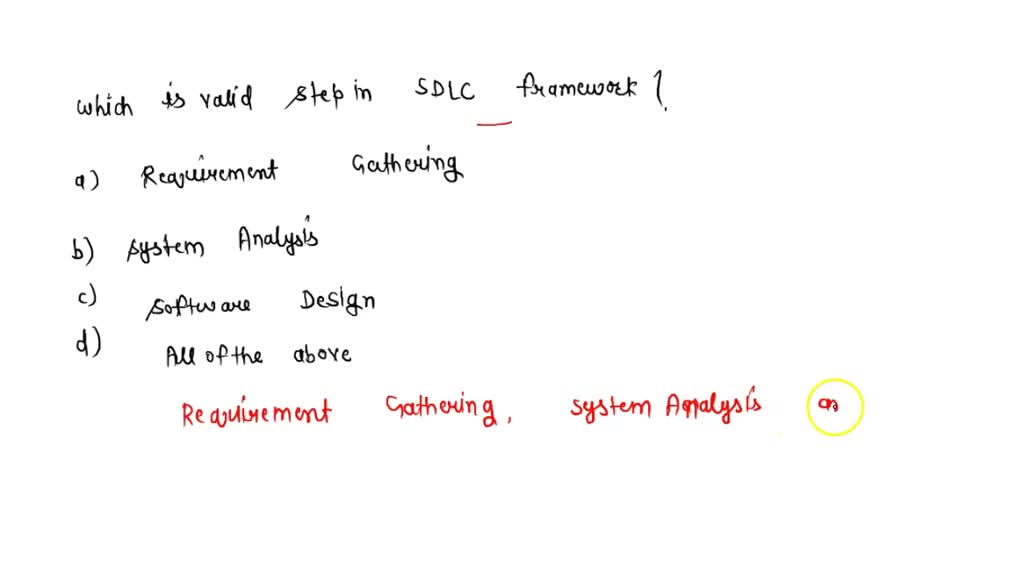 which is valid step in SDLC framework ?
a) Requirement Gathering
b) System Analysis
c) Software Design
d) All of the above
Requirement Gathering, System Analysis an